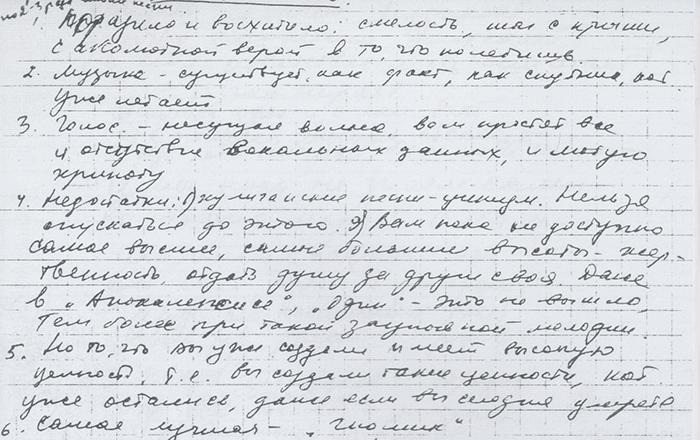 песни
Поразило и восхитило: смелость, шаг с крыши,
с абсолютной верой в то, что полетишь.
2. Музыка - существует как факт, как спутник, кот.
уже летает
3. Голос. - несущая волна, вам простят все
и отсутствие вокальных данных, и любую
хрипоту
4. Недостатки: 1) хулиганские песни - цинизм. Нельзя
опускаться до этого. 2) Вам пока не доступно
самое высшее, самые большие высоты - жер-
твенность, отдать душу за други своя Даже
в "Апокалепсисе", "Один" - это не вышло,
Тем более при такой заупокойной мелодии.
5. Но то, что вы уже создали имеет высокую
ценность, т.е. вы создали такие ценности, кот.
уже остались, даже если вы сегодня умрете
6. Самая лучшая - "Гномик"